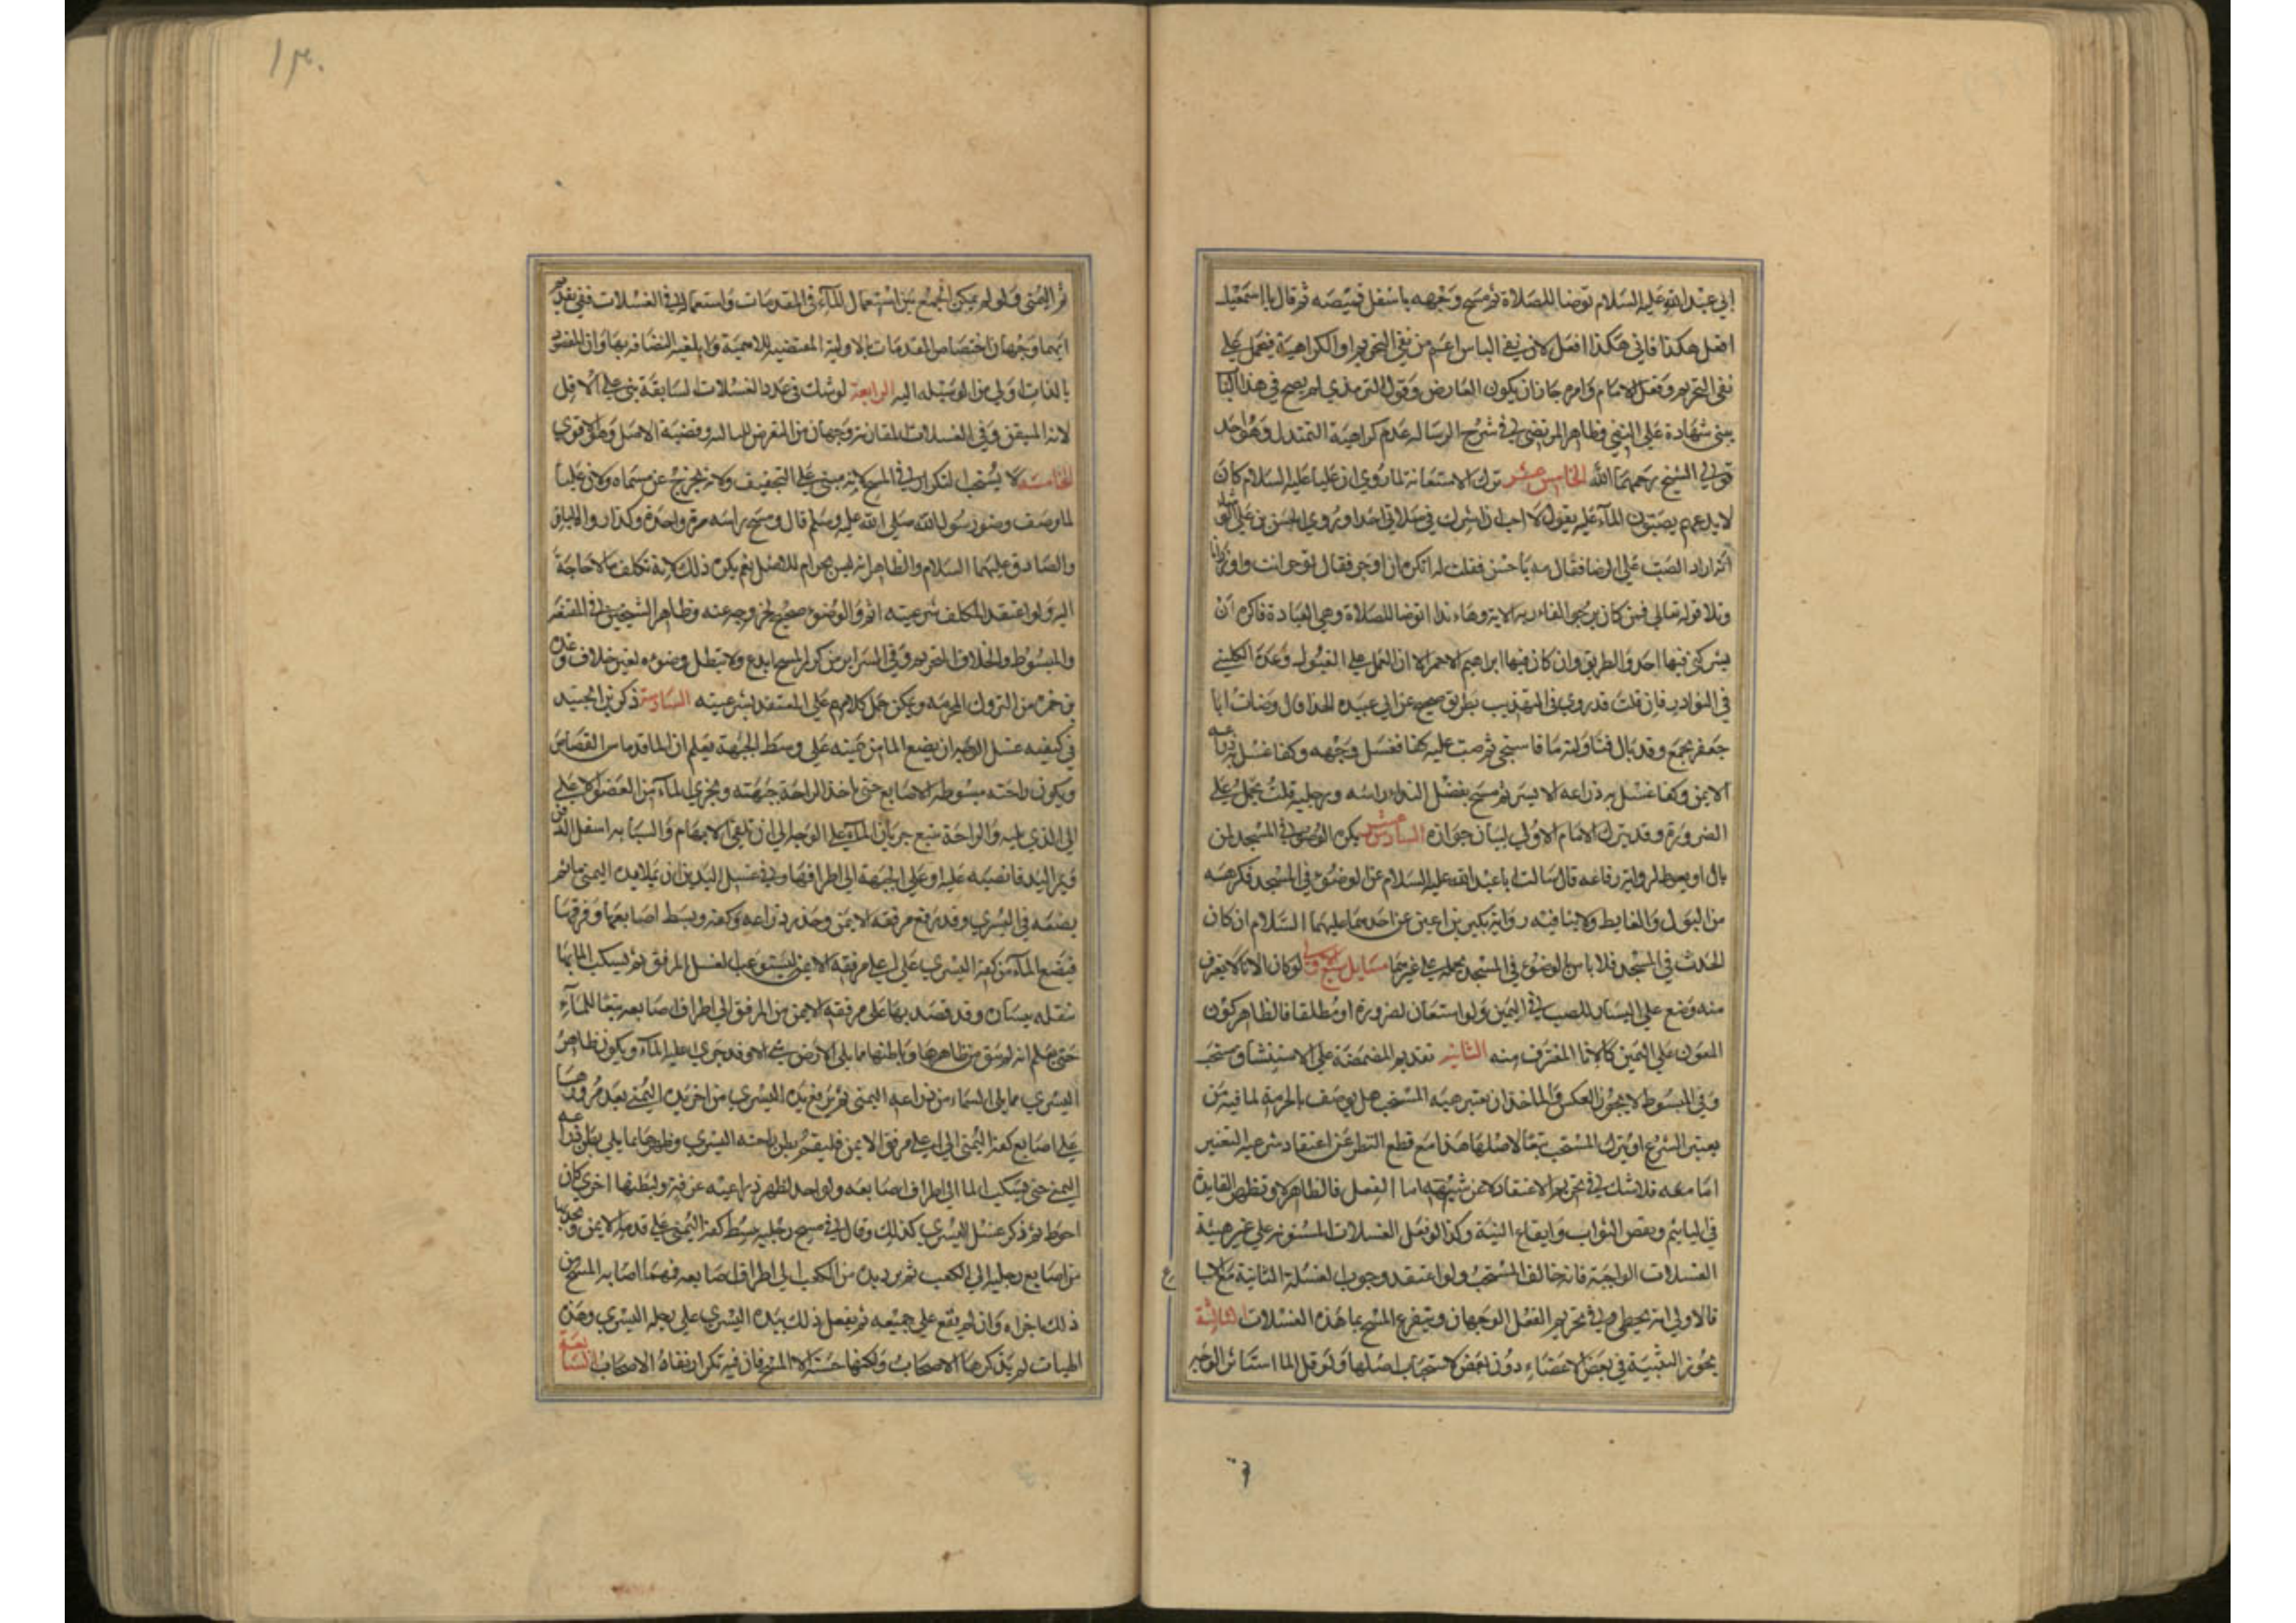 ابي عبد الله عليه السلام توضا للصلاة ثم مسح وجهه باسفل قميصه ثم قال يا اسمعيل
افعل هكذا فاني هكذا افعل لان نفي الباس اعم من نفي التحريم او الكراهية فيحمل على
نفي التحريم وفعل الامام وامره جاز ان يكون العارض وقول الترمذي لم يصح في هذا الباب
شهادة على النفي وظاهر المرتضى في شرح الرسالة عدم كراهية التمندل وهو احد
قولي الشيخ رحمهما الله الخامس عشر ترك الاستعانة لما روي ان عليا عليه السلام كان
لا يدعهم يصبون الماء عليه يقول لا احب ان اشرك في صلاتي احدا وروي الحسن بن علي الوشا
انه اراد الصب على الرضا فقال مه يا حسن فقلت له اتكره ان اوجر فقال توجر انت واوزر انا
وتلا قوله تعالى فمن كان يرجو لقاء ربه الاية وها انا ذا اتوضا للصلاة وهي العبادة فاكره ان
يشركني فيها احد والطريق وان كان فيها ابراهيم الاحمر الا ان العمل على القبول وعده الكليني
في النوادر فان قلت قد روي في التهذيب بطريق صحيح عن ابي عبيده الحذا قال وضات ابا
جعفر بجمع وقد بال فناولته ما فاستنجى ثم صبت عليه كفا فغسل وجهه وكفا غسل به ذراعه
الايمن وكفا غسل به ذراعه الايسر ثم مسح بفضل الندا راسه ورجليه قلت يحمل على
الضرورة وقد يترك الامام الاولى لبيان جوازه السادس عشر يكره الوضو في المسجد لمن
بال او تغوط لرواية رفاعه قال سالت ابا عبد الله عليه السلام عن الوضوء في المسجد فكرهه
من البول والغايط ولا ينافيه رواية بكير بن اعين عن احدهما عليهما السلام ان كان
الحدث في المسجد فلا باس بالوضوء في المسجد بحمله على غيرهما مسايل سبع الاولى لو كان الانا لا يغرف
منه وضع على اليسار للصب في اليمين ولو استعان لضرورة او مطلقا فالظاهر كون
المعون على اليمين كالانا المغترف منه الثانيه تقديم المضمضة على الاستنشاق مستحب
وفي المبسوط لا يجوز العكس والماخذ ان تغيير هيه المستحب هل يوصف بالحرمة لما فيه من
تغيير الشرع او يترك المستحب تبعا لاصلها هذا مع قطع النظر عن اعتقاد شرعيه التغيير
اما معه فلا شك في تحريم الاعتقاد لا عن شبهة اما الفعل فالظاهر لا وتظهر الفايدة
في التاثيم ونقص الثواب وايقاع النية وكذا لو فعل الغسلات المسنونه على غير هيئة
الغسلات الواجبة فانه خالف المستحب ولو اعتقد وجوب الغسلة الثانية
فالاولى انه يخطي وفي تحريم الفعل الوجهان ويتفرع المسح بما هذه الغسلات الثالثة
يجوز التثنية في بعض الاعضاء دون بعض لاستحباب اصلها ولو قل الما استاثر الوجه
ثم اليمنى ولو لم يمكن الجمع بين استعمال الماء في المقدمات واستعماله في الغسلات ففي تقديم
ايهما وجهان اختصاص المقدمات بالاولية المقتضيه للاهمية والغير النضافر بها وان المقصود
بالذات اولى من الوسيله اليه الرابعة لو شك في عدد الغسلات السابقة بنى على الاقل
لانه المتيقن وفي الغسلات الملقاة وجهان من المغرض للساله وقضية الاصل وهو اقوى
الخامسه لا يستحب التكرار في المسح لانه مبني على التخفيف ولانه يخرج عن مسماه ولان عليا
لما وصف وضو رسول الله صلى الله عليه وسلم قال ومسح راسه مرة واحدة وكذا روا الباقر
والصادق عليهما السلام والظاهر انه ليس بحرام للاصل نعم يكره ذلك لانه تكلف ما لا حاجة
اليه ولو اعتقد المكلف شرعيته اثم والوضوء صحيح لخروجه عنه وظاهر الشيخين في المقنعه
والمبسوط والخلاف التحريم وفي السراير من كرر المسح ابدع ولا يبطل وضوءه بغير خلاف وعده
من حمزه من التروك المحرمه ويمكن حمل كلامهم على المعتقد شرعيته السادسه ذكر بن الجنيد
في كيفيه غسل الوجه ان يضع الما من يمينه على وسط الجبهة يعلم ان الما قد ماس القصاص
ويكون راحته مبسوطه الاصابع حتى ياخذ الراحة جبهته ويجري الماء من العضو الاعلى
الى الذي يليه والراحة تتبع جريان الماء على الوجه الى ان تلتقي الابهام والسبابه اسفل الذقن
ويمر اليد قابضه عليه او على الجبهة الى اطرافها وفي غسل اليدين ان يملا يده اليمنى ما ثم
يضعه في اليسري وقد رفع مرفقه الايمن وحذره ذراعه وكفه وبسط اصابعها وفرقها
فيضع الماء من كفه اليسري على اعلى مرفقه الايمن ليستوعب لغسل المرفق ثم يسكب الما بها
ينقله بيسان وقد قصد بها على مرفقه الايمن من المرفق الى اطراف اصابعه تبعا للماء
حتى يعلم انه لم يبق من ظاهرها وباطنها مما يلى الارض شي الا وقد جرى عليه الماء ويكون ظاهر
اليسري مما يلى السماء من ذراعه اليمنى ثم يرفع يده اليسري من اخر يده اليمنى بعد مرورها
على اصابع كفه اليمنى الى اعلى مرفق الايمن فليقم بطن راحته اليسري وظهرها مما يلي بطن ذراعه
اليمنى حتى يسكب الما الى اطراف اصابعه ولو اخذ لظهر ذراعيه غرفة ولبطنها اخرى كان
احوط ثم ذكر غسل اليسري كذلك وقال في مسح رجليه يبسط كفه اليمنى على قدمه الايمن ويجذبها
من اصابع رجليه الى الكعب ثم يرد يده من الكعب الى اطراف اصابعه فمهما اصابه المسح من
ذلك اجزاه وان لم يقع على جميعه ثم يفعل ذلك بيده اليسري على رجله اليسري وهذه
الهيات لم يذكرها الاصحاب ولكنها حسنة الا المسح فان فيه تكرارا نفاه الاصحاب السابعة